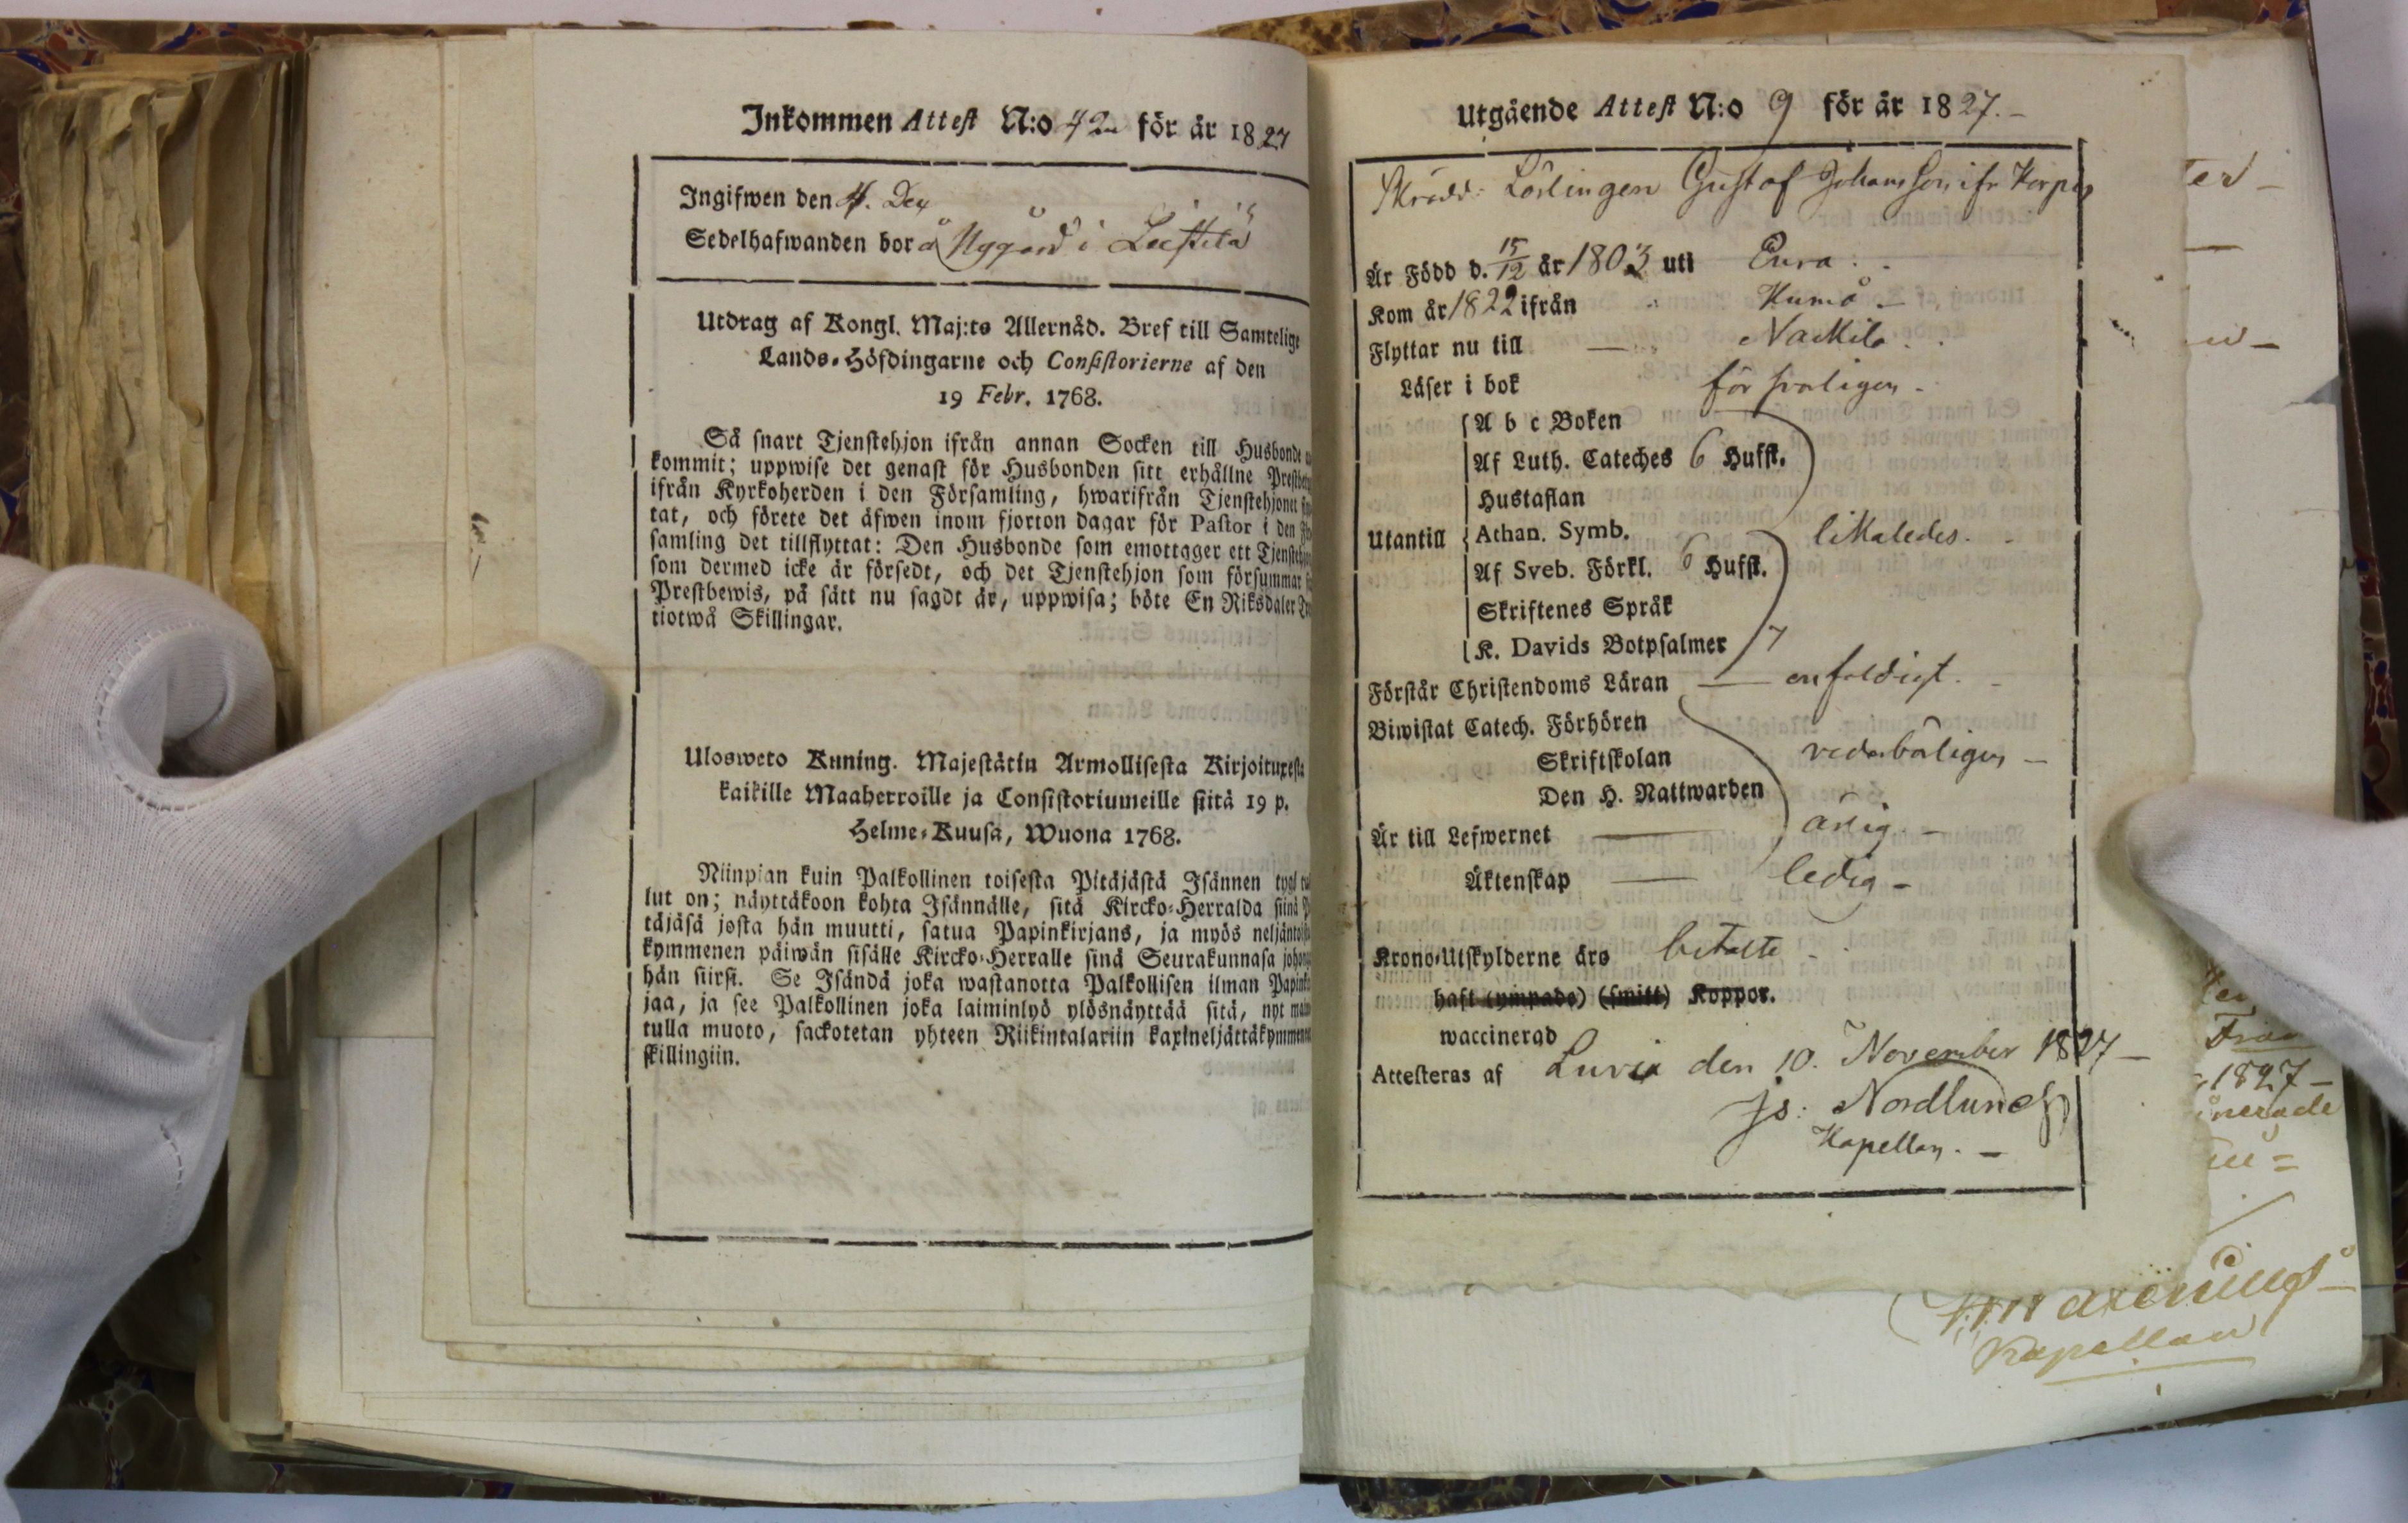 Inkommen Attest N:o 42 för år 1827
Ingifwen den 4. Dec
Sedelhafwanden bor å Nygård i Leistilä
Utdrag af Kongl. Maj:ts Allernåd. Bref till Samtelige
Lands-Höfdingarne och Consistorierne af den
19 Febr. 1768.
Så snart Tjenstehjon ifrån annan Socken till Husbonde
kommit; uppwise det genast för Husbonden sitt erhållne
ifrån Kyrkoherden i den Församling, hwarifrån Tjenstehjonet
tat, och förete det äfwen inom fjorton dagar för Pastor i den
samling det tillflyttat: Den Husbonde som emottager ett
som dermed icke är försedt, och det Tjenstehjon som försummar
Prestbewis, på sätt nu sagdt är, uppwisa; böte En Riksdaler
tiotwå Skillingar.
Ulosweto Kuning. Majestätin Armollisesta Kirjoituxesta
kaikille Maaherroille ja Consistoriumeille siitä 19 p.
Helme-Kuusa, Wuona 1768.
Niinpian kuin Palkollinen toisesta Pitäjästä Isännen tygö
lut on; näyttäkoon kohta Isännälle, sitä Kircko-Herralda siinä
täjäsä josta hän muutti, satua Papinkirjans, ja myös
kymmenen päiwän sisälle Kircko-Herralle sinä Seurakunnasa
hän siirsi. Se Isändä joka wastanotta Palkollisen ilman
jaa, ja see Palkollinen joka laiminlyö ylösnäyttää sitä, nyt
tulla muoto, sackotetan yhteen Riikintalariin kaxineljättäkymmenen
skillingiin.
Utgående Attest N:o 9 för år 1827.
Skrädd: Lärlingen Gustaf Johansson ifr Korpi
Är Född d. 15/12 år 1803 uti Eura.
Kom år 1822 ifrån Kumo
Flyttar nu till Nackila
Läser i bok försvarligen
A b c Boken
Af Luth. Cateches 6 Hufst.
Hustaflan
Utantill Athan. Symb. likaledes.
Af Sveb. Förkl. 6 Hufst.
Skriftenes Språk
K. Davids Botpsalmer 7
Förstår Christendoms Läran enfaldigt.
Biwistat Catech. Förhören
Skriftskolan vederbörligen
Den H. Nattwarden
Är till Lefwernet ärlig
Äktenskap ledig
Krono-Utskylderne äro betalte
haft (ympade) (smitt) Koppor.
waccinerad
Attesteras af Luvia den 10. November 1827
Js: Nordlund
Kapellan.
1827
Kapellan